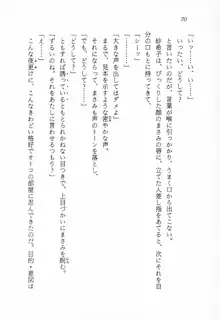 70
「いッ……い、い……」
いったい、どうして？
と言いたいのだが、言葉が喉に引っかかって、うまく口から出てこない。
紗希子は、びっくりした顔のまさみの唇に、立てた人差し指をあてると、次にそれを自
分の口もとに持ってきて、
「シーッ」
「…………」
「大きな声を出してはダメよ」
まるで、見本を示すような密やかな声。
「ど、どうして？……」
思わず、まさみも声のトーンを落として、
「ずるいのね。あたしに言わせる気？」
とても誘っているとは思えない目つきで、上目づかいにまさみを睨む。
こんな夜更けに、こんなきわどい格好でオトコの部屋に忍んできたのだ。目的・意図は